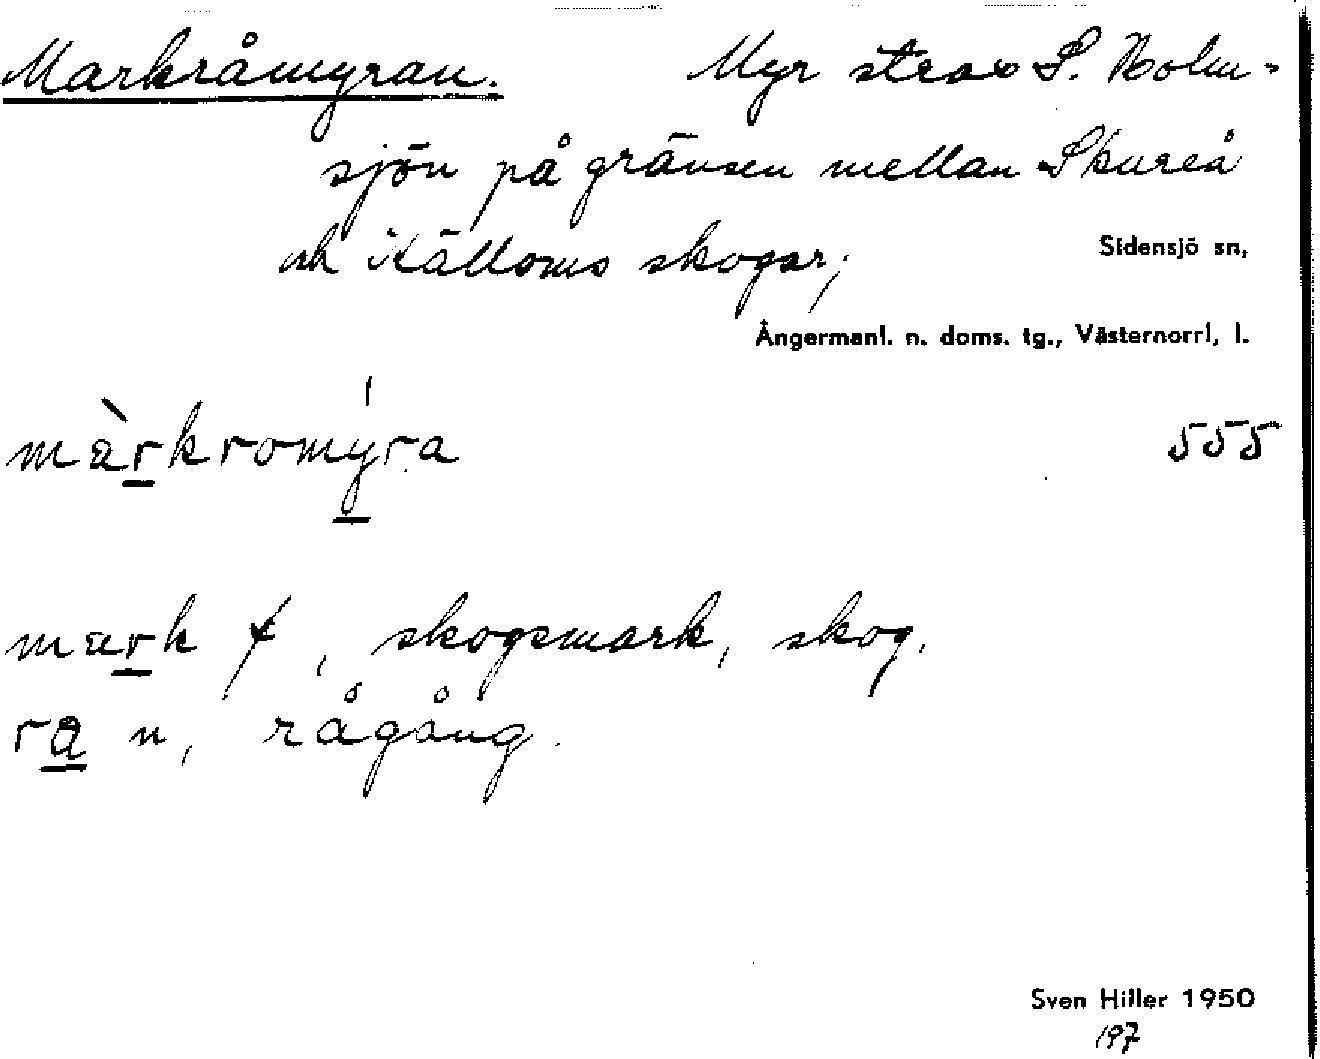 Markråmyran. Myr strax S. Holm-
sjön på gränsen mellan Skureå
och Källoms skogar;
Sidensjö sn,
Ångermanl. n. doms. tg., Västernorrl, l.
màrkromýra 555
mark f, skogsmark, skog.
ra n, rågång.
Sven Hiller 1950
197